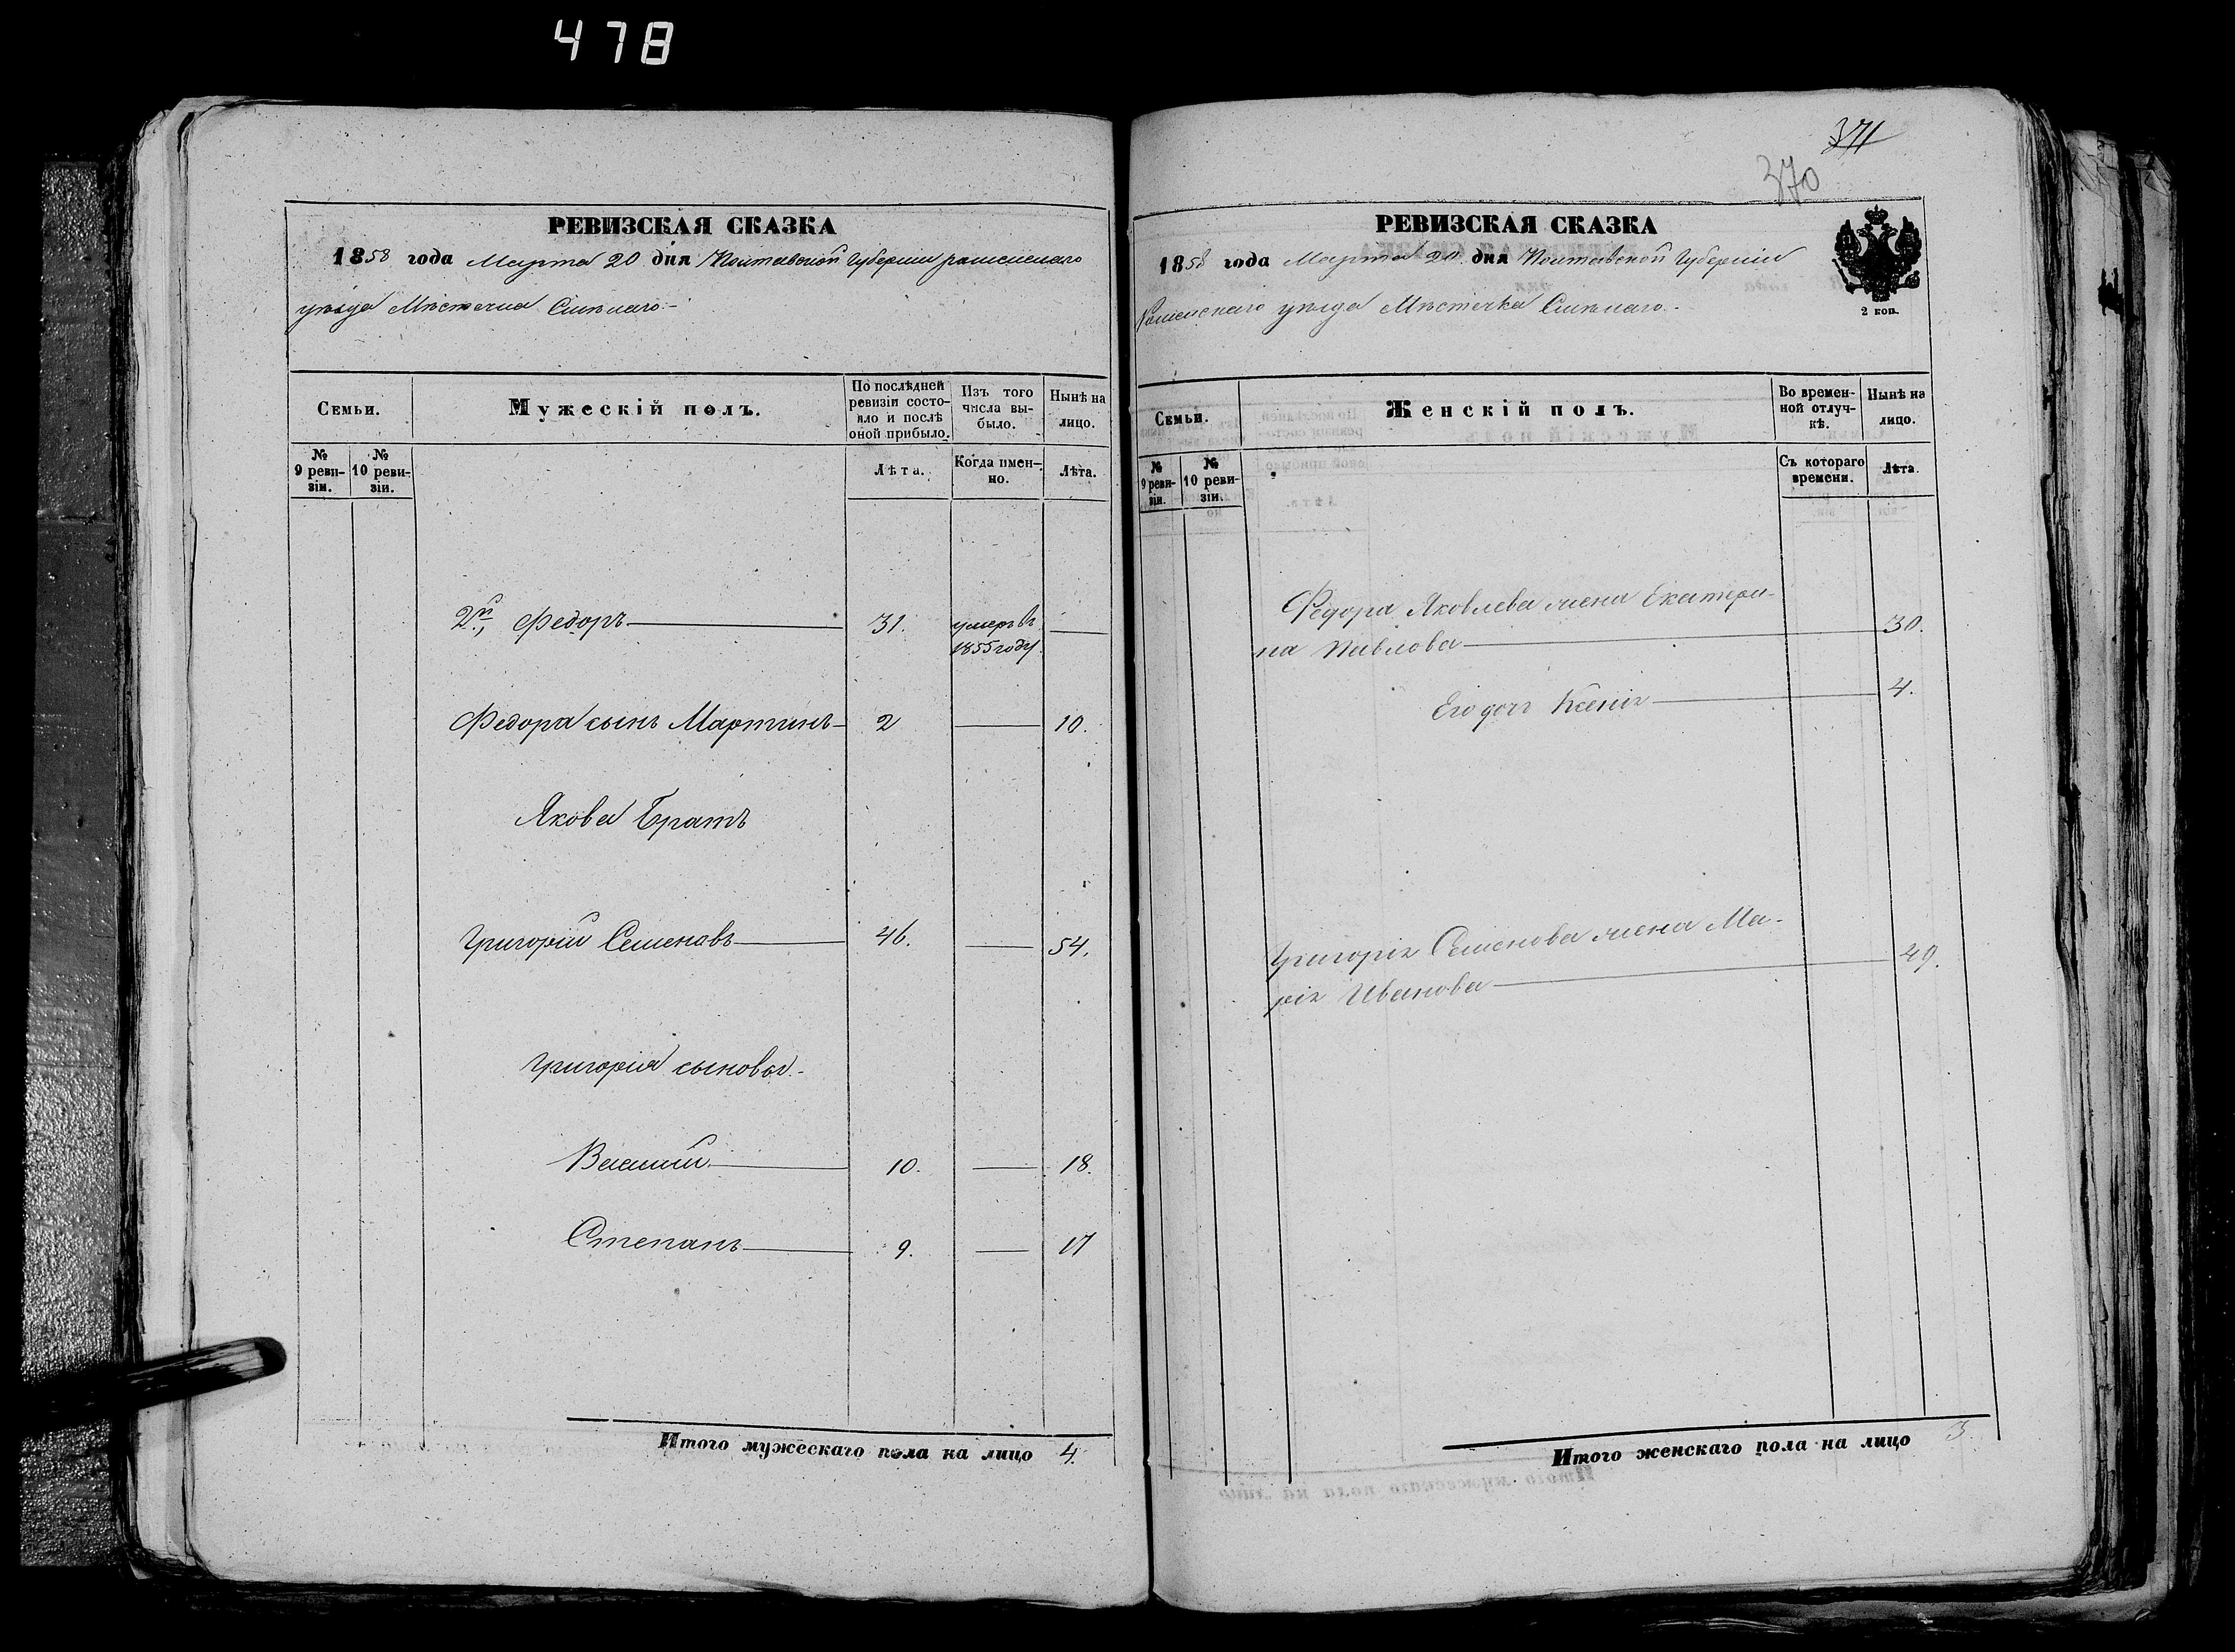 478
РЕВИЗСКАЯ СКАЗКА
1858 года Марта 20 дня Полтавской Губернии роменскаго
уѣзда Мѣстечка Смѣлаго.-
Семьи.
Мужескій полъ.
По послѣдней
ревизіи состо-
яло и послѣ
оной прибыло.
Изъ того
числа вы-
было.
Нынѣ на
лицо.
№
9 реви-
зіи.
№
10 реви-
зіи.
Лѣта.
Когда имен-
но.
Лѣта.
2й, Федоръ 31. умеръ въ
1855 году.
Федора сынъ Мартинъ 2 10.
Якова Братъ
Григорий Семеновъ 46. 54.
Григорія сыновья.-
Василий 10. 18.
Степанъ 9. 17
Итого мужескаго пола на лицо 4.
371
370
РЕВИЗСКАЯ СКАЗКА
1858 года Марта 20 дня Полтавской Губерніи
Роменскаго уѣзда Мѣстечка Смѣлаго.-
2 коп.
Семьи.
Женскій полъ.
Во времен-
ной отлуч-
кѣ.
Нынѣ на
лицо.
№
9 реви-
зіи.
№
10 реви-
зіи.
Съ котораго
времени.
Лѣта.
Федора Яковлева жена Екатери-
на Павлова 30.
Его дочь Ксенія 4.
Григорія Семенова жена Ма-
рія Иванова 49.
Итого женскаго пола на лицо 3.